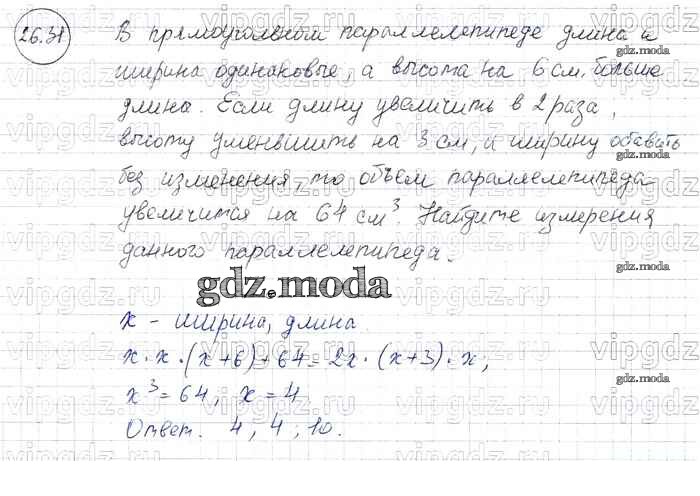 26.31
В прямоугольном параллелепипеде длина и
ширина одинаковые, а высота на 6 см. больше
длина. Если длину увеличить в 2 раза,
высоту уменьшить на 3 см, и ширину оставить
без изменения, то объем параллелепипеда
увеличится на 64 см³. Найдите измерения
данного параллелепипеда.
gdz.moda
x - ширина, длина.
x · x · (x+6) + 64 = 2x · (x+3) · x;
x³ = 64, x = 4
Ответ. 4, 4, 10.
gdz.moda
gdz.moda
gdz.moda
gdz.moda
gdz.moda
vipgdz.ru